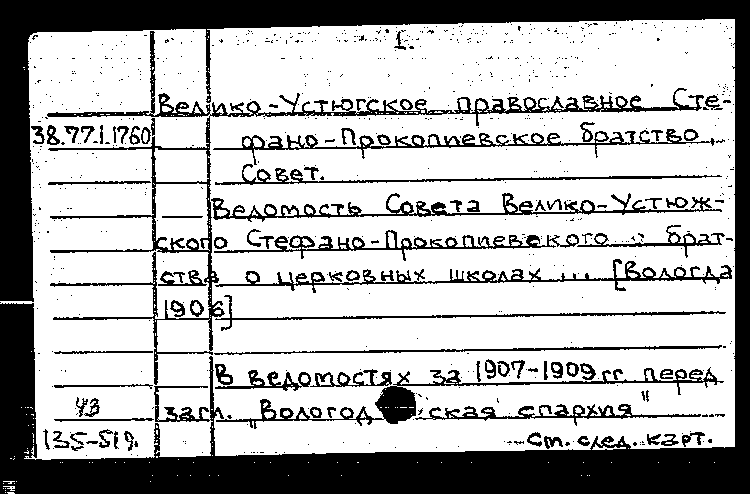 1.
Велико-Устюгское православное Сте-
38.77.1.1760 фано-Прокопиевское братство,
Совет.
Ведомость Совета Велико-Устюж-
ского Стефано-Прокопиевского брат-
ства о церковных школах ... [Вологда
1906]
В ведомостях за 1907-1909 гг перед
43 загл. "Вологодская епархия"
ст. след. карт.